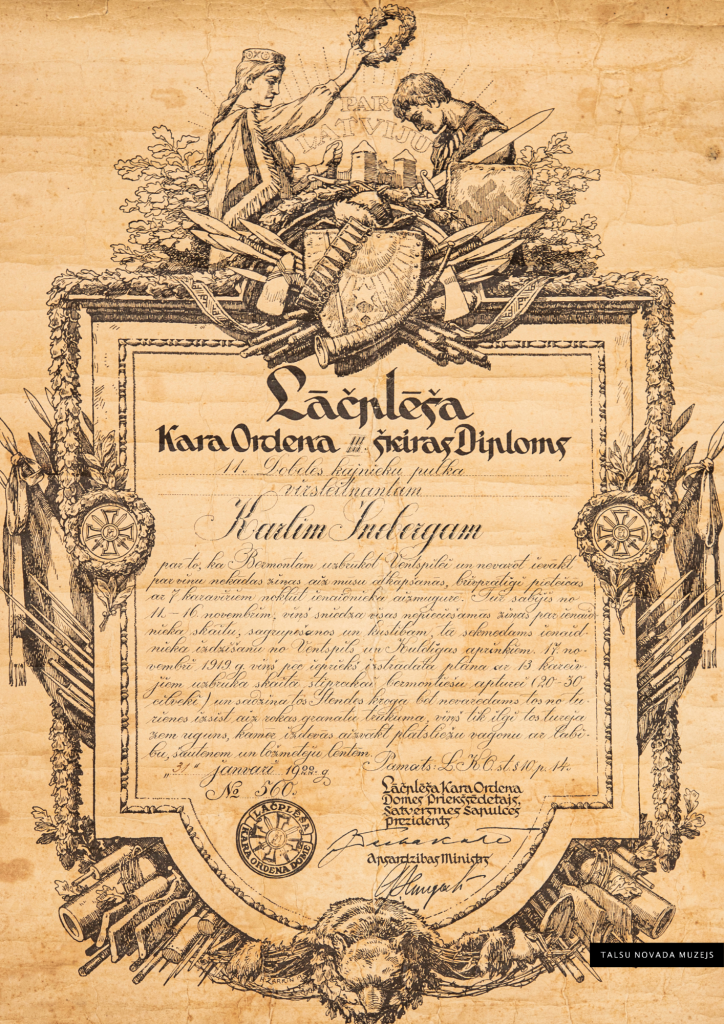 PAR
LATVIJU
Lāčplēša
Kara Ordeņa III. šķiras Diploms
11. Dobeles kājnieku pulka
virsleitnantam
Kārlim Insbergam
par to, ka Bermontam uzbrukot Ventspilei un nevarot ievākt
par viņu nekādas ziņas aiz mūsu atkāpšanās, brīvprātīgi pieteicās
ar 7 kareivjiem nokļūt ienaidnieka aizmugurē. Tur sabijis no
11.-16. novembrim, viņš sniedza visas nepieciešamās ziņas par ienaid-
nieka skaitu, sagrupēšanos un kustībām, tā sekmēdams ienaid-
nieka izdzīšanu no Ventspils un Kuldīgas apriņķiem. 17. no-
vembrī 1919 g. viņš pēc iepriekš izstrādāta plāna ar 13 karei-
vjiem uzbruka skaitā stiprākai bermontiešu apturei (20-30
cilvēki) un sadzina tos Stendes krogā bet nevarēdams tos no tu-
rienes izsist aiz rokas granātu trūkuma, viņš tik ilgi tos turēja
zem uguns, kamēr izdevās aizvākt platsliežu vagonu ar labī-
bu, šautenēm un ložmetēju lentēm.
Pamats: L.K.O.st. § 10 p. 14.
„31" janvārī 1922. g.
№ 560.
Lāčplēša Kara Ordeņa
Domes Priekšsēdētājs,
Satversmes Sapulces
Prezidents
Apsardzības Ministrs
LĀČPLĒŠA
KARA ORDEŅA DOME
TALSU NOVADA MUZEJS